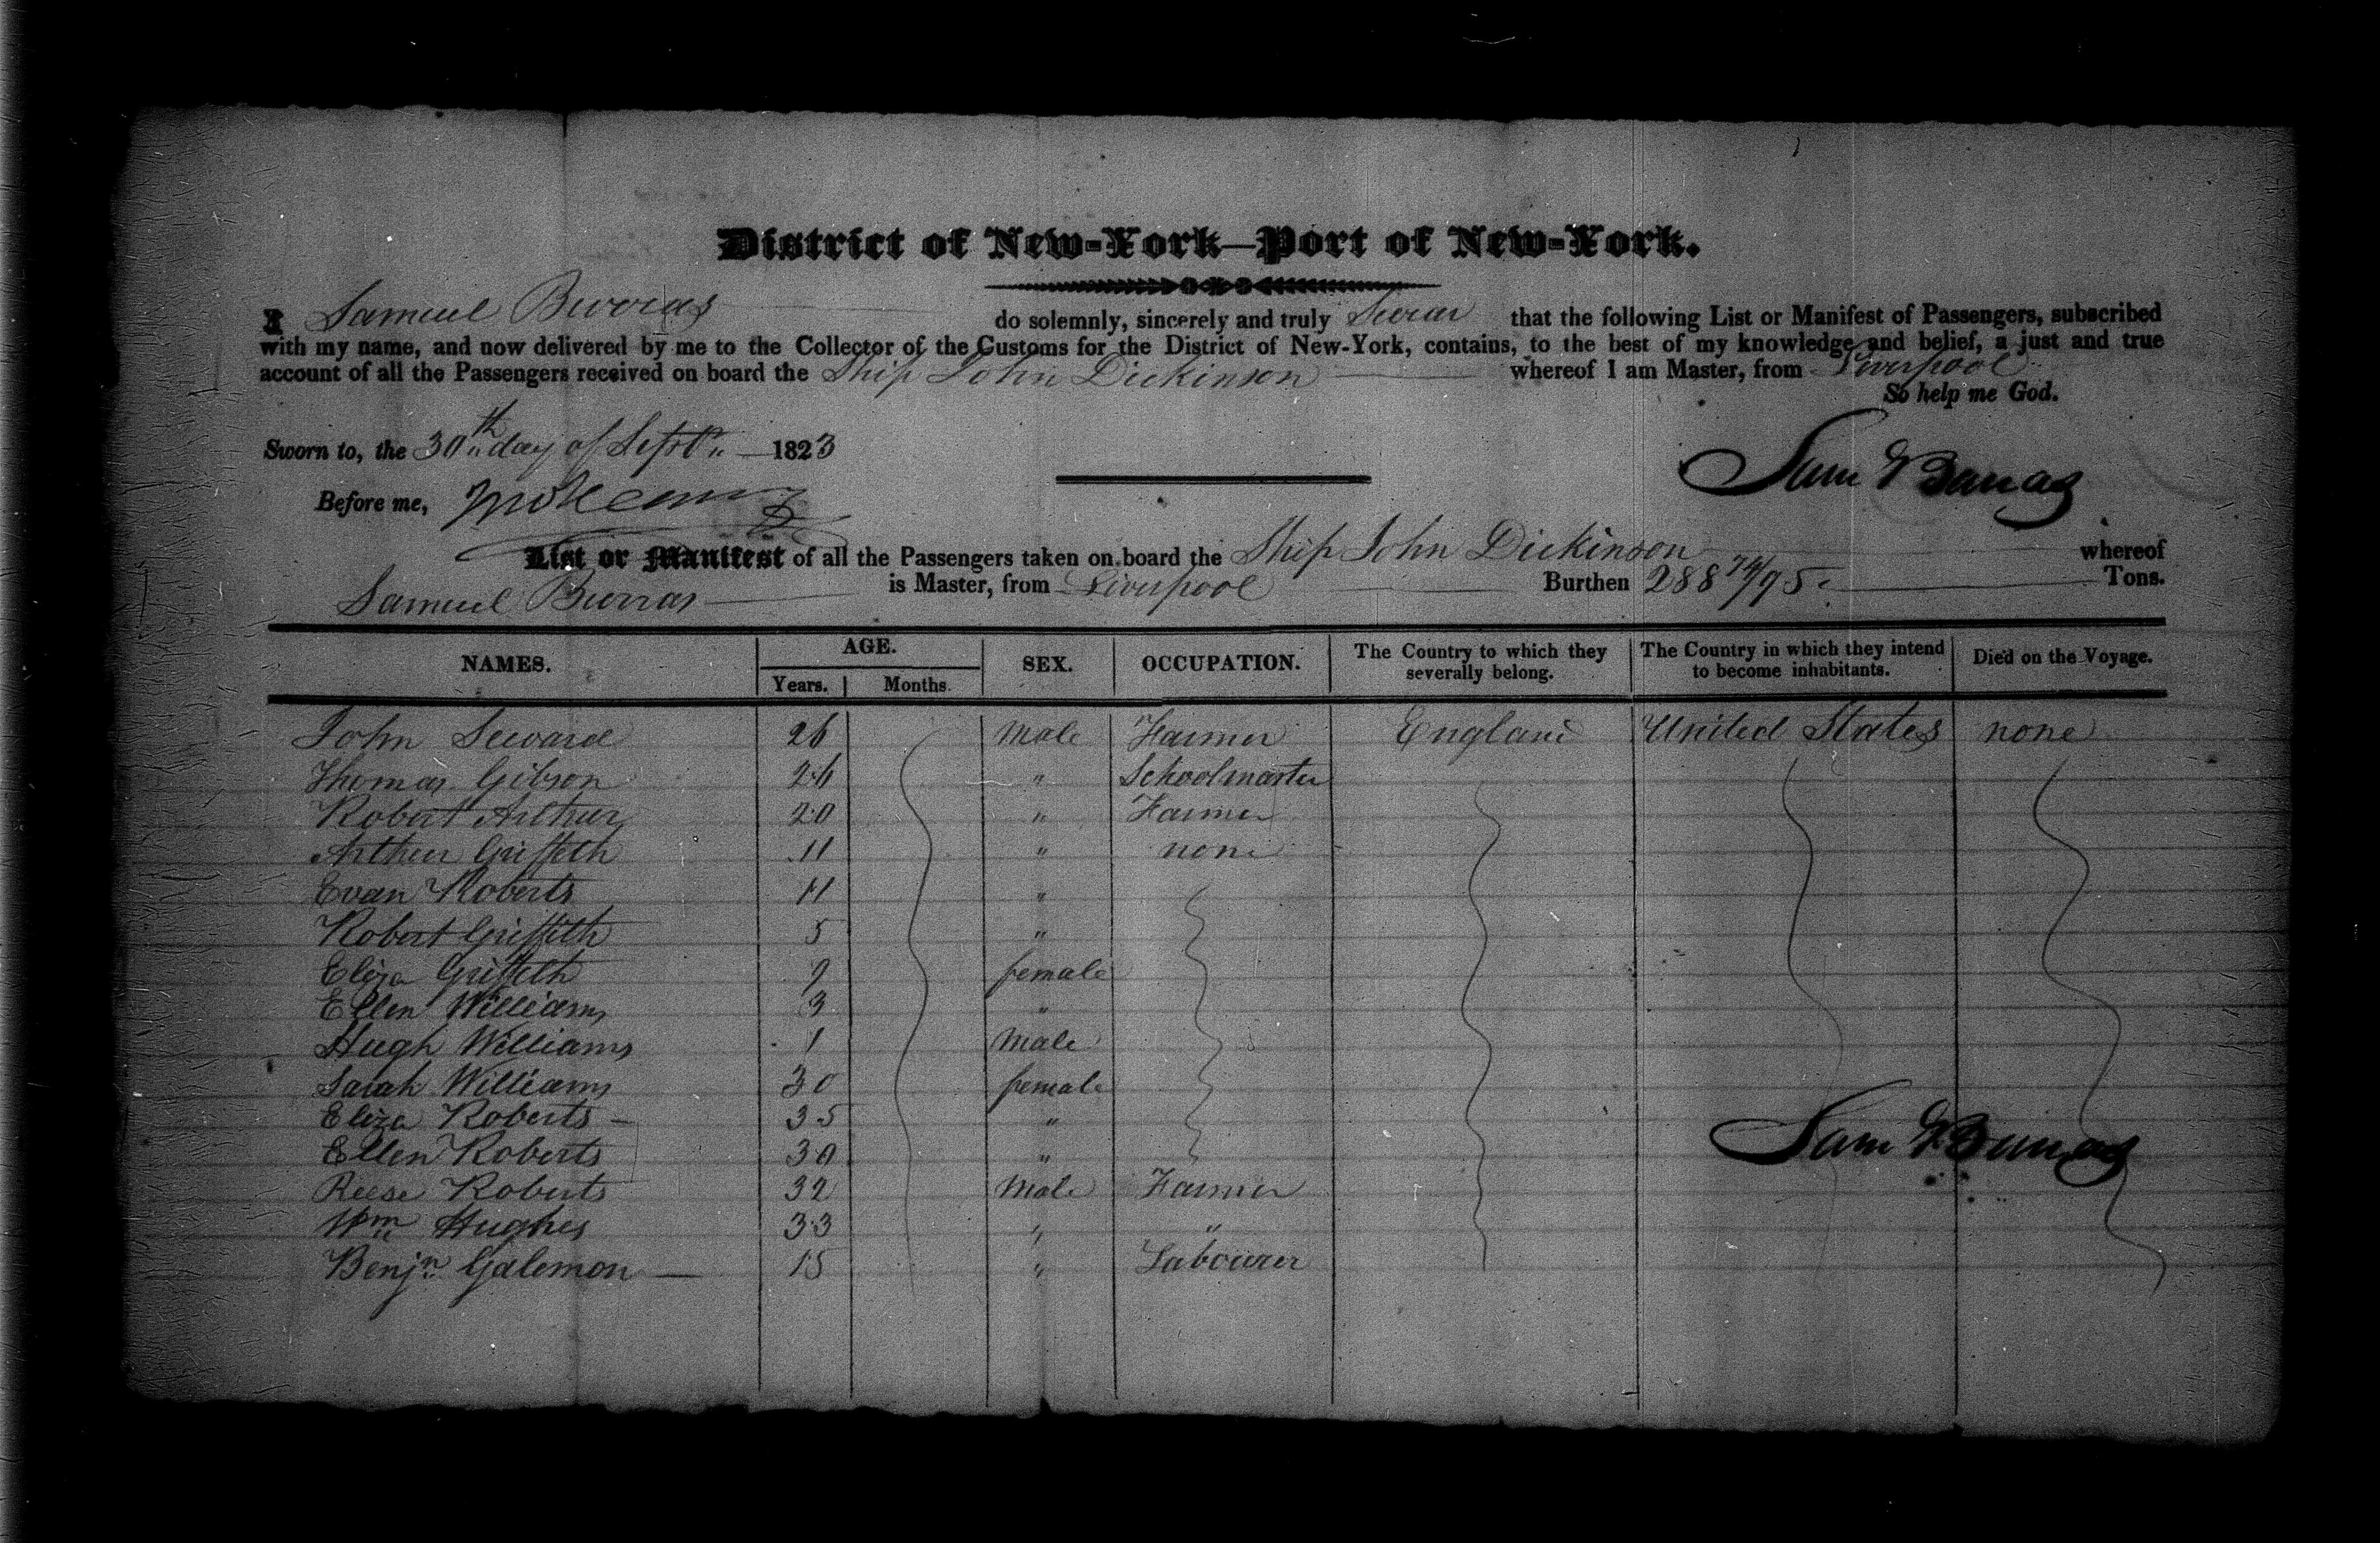 District of New-York—Port of New-York.
I Samuel Burras do solemnly, sincerely and truly Swear that the following List or Manifest of Passengers, subscribed
with my name, and now delivered by me to the Collector of the Customs for the District of New-York, contains, to the best of my knowledge and belief, a just and true
account of all the Passengers received on board the Ship John Dickinson whereof I am Master, from Liverpool
So help me God.
Sworn to, the 30th day of Septr. 1823
Sam Burras
Before me,
List or Manifest of all the Passengers taken on board the Ship John Dickinson whereof
Samuel Burras is Master, from Liverpool Burthen 288 74/95 Tons.
NAMES. AGE. SEX. OCCUPATION. The Country to which they severally belong. The Country in which they intend to become inhabitants. Died on the Voyage.
Years. Months.
John Seward 26 Male Farmer England United States none
Thomas Gibson 26 " Schoolmaster
Robert Arthur 20 " Farmer
Arthur Griffeth 11 " none
Evan Roberts 11 "
Robert Griffeth 5 "
Eliza Griffeth 9 female
Ellen Williams 3 "
Hugh Williams 1 Male
Sarah Williams 30 female
Eliza Roberts — 35 "
Ellen Roberts 30 "
Sam Burras
Reese Roberts 32 Male Farmer
Wm Hughes 33 " "
Benjn Galemon — 15 " Labourer